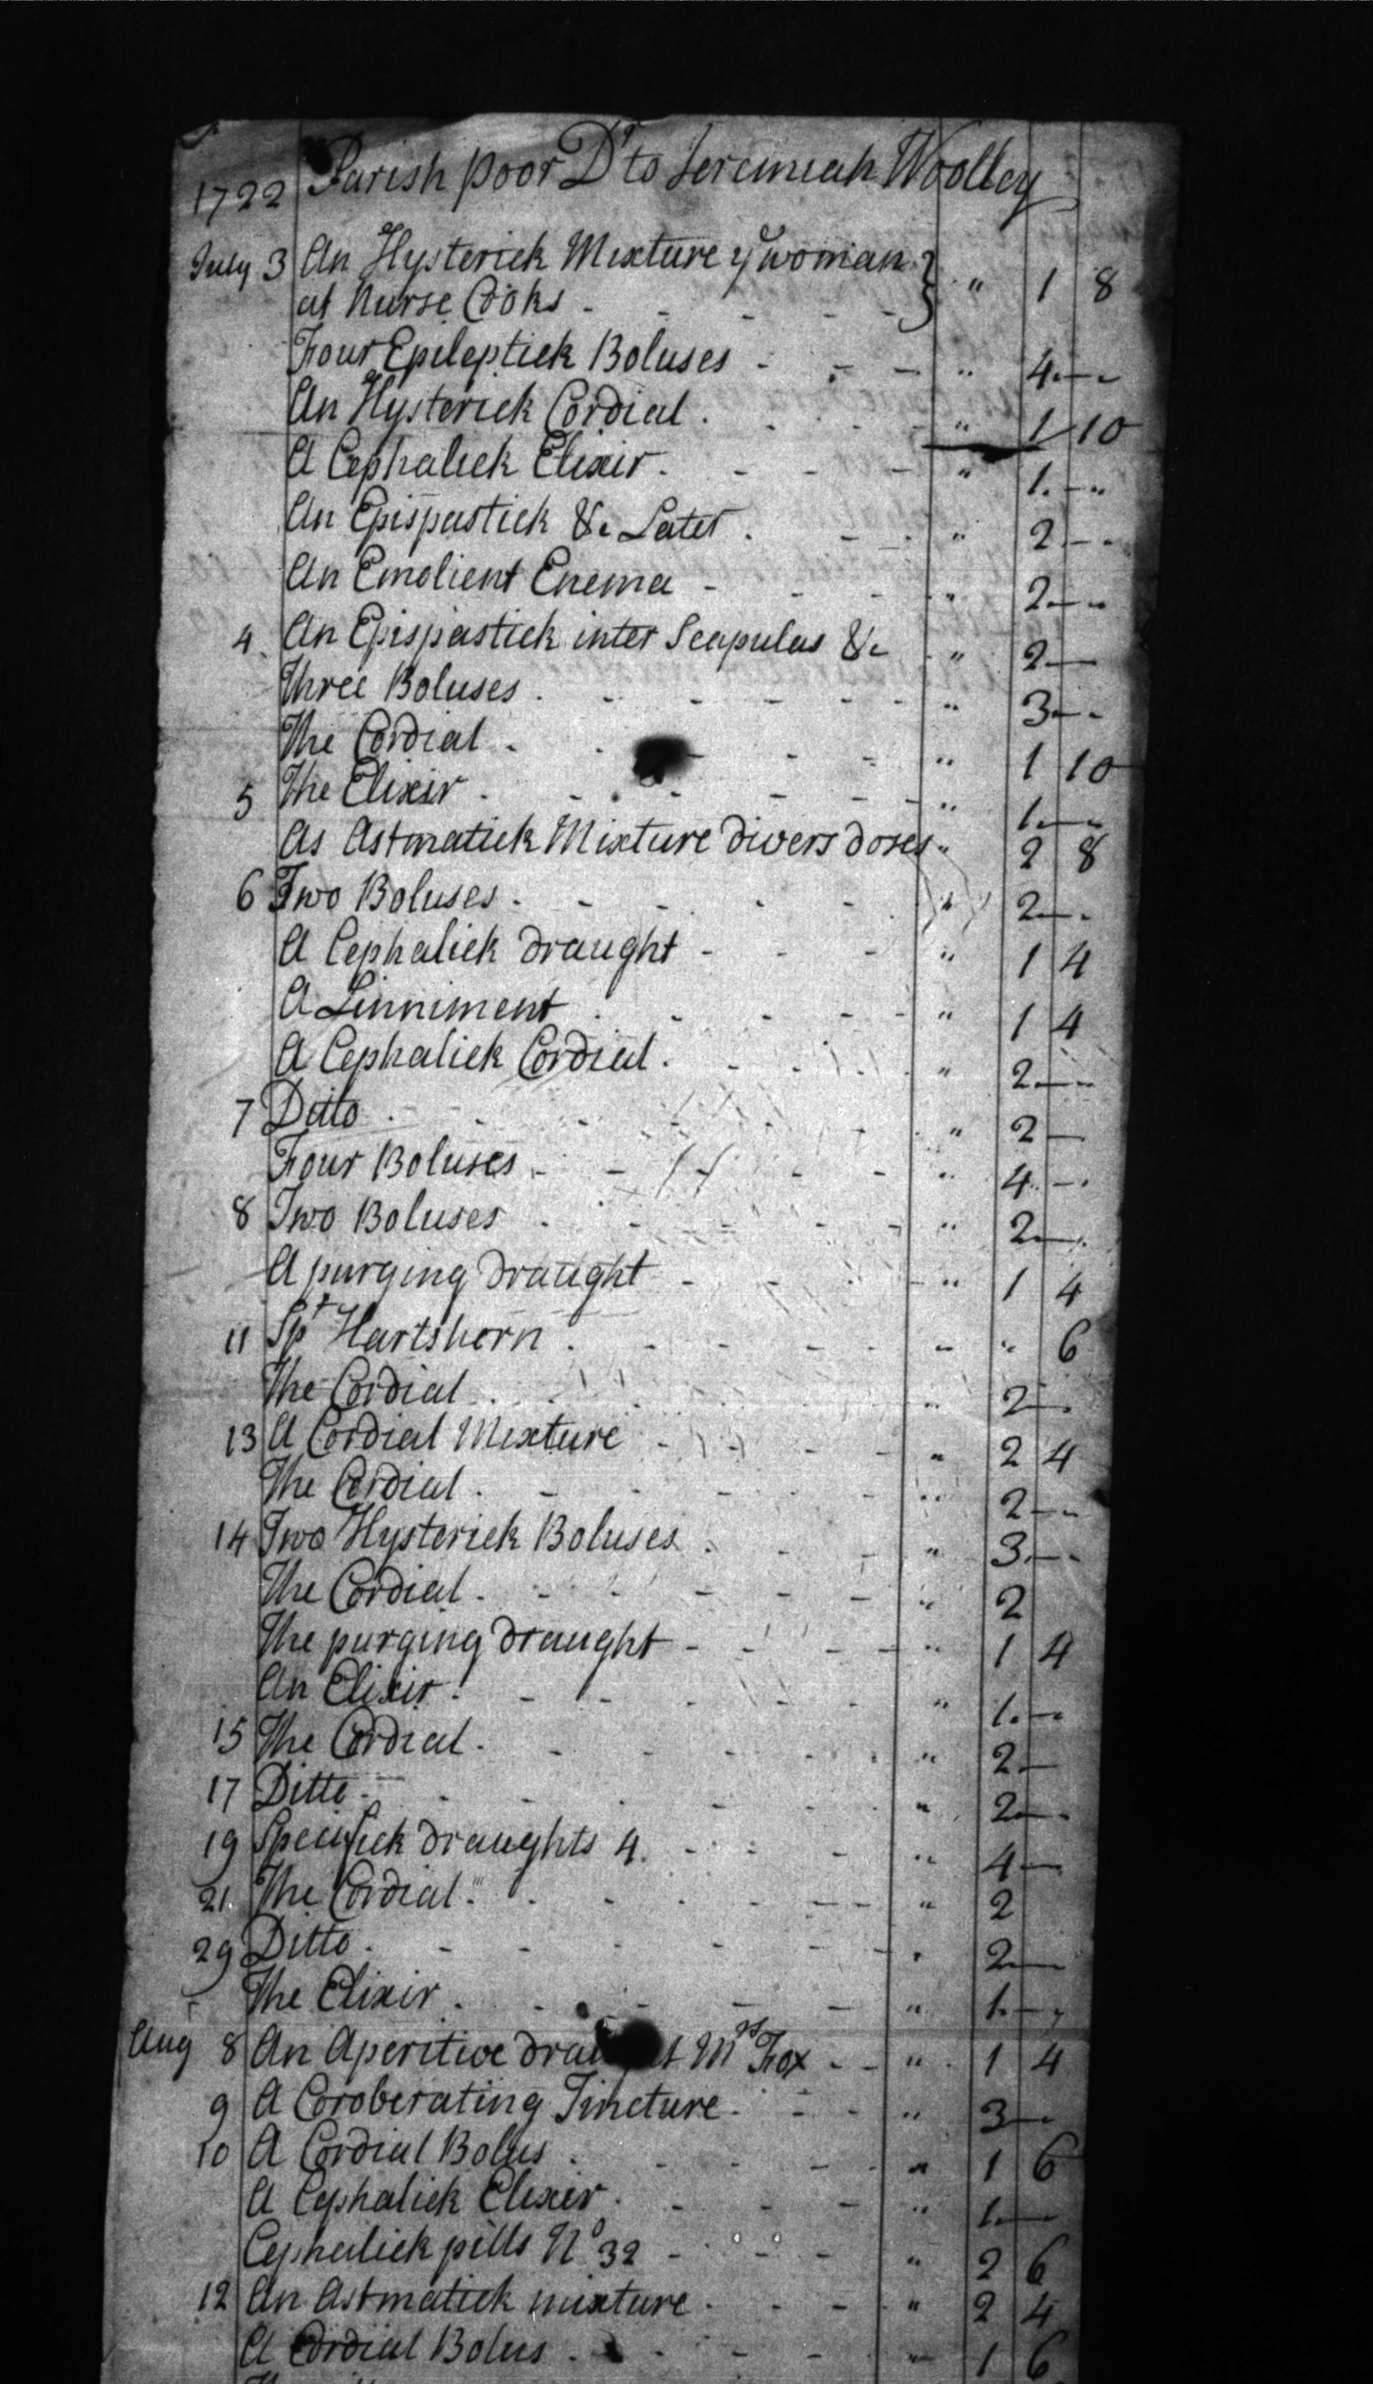 1722 Parish poor Dr to Jeremiah Woolley
July 3 An Hysterick Mixture ye woman
at Nurse Cooks - - - - } " 1 8
Four Epileptick Boluses - - - " 4 - -
An Hysterick Cordial . . . - " 1 10
A Cephalick Elixir . - - - " 1 . - "
An Epispastick &c Later . - - . " 2 - -
An Emolient Enema - - - " 2 - -
4 An Epispastick inter Scapulas &c " 2 -
Three Boluses . - - - - - " 3 - -
The Cordial . . - - - " 1 10
5 The Elixir . - . - - - - " 1 - -
As Astmatick Mixture divers doses " 2 8
6 Two Boluses . - - . - . " 2 - .
A Cephalick draught - - - " 1 4
A Linniment . - - - - " 1 4
A Cephalick Cordial . - . . . " 2 - -
7 Ditto . - - - - - . " 2 -
Four Boluses . - - - " 4 . - .
8 Two Boluses . - - - - " 2 - .
A purging draught - - - - " 1 4
11 Spt Hartshorn . - - - - - " 6
The Cordial . . . . . . " 2 - .
13 A Cordial Mixture - - - - " 2 4
The Cordial . - - - - - " 2 - -
14 Two Hysterick Boluses . - - " 3 . - -
The Cordial . - - - - - " 2
The purging draught - - - - " 1 4
An Elixir . - - - - - " 1 . - .
15 The Cordial . - - - - . " 2 . -
17 Ditto . - - . - - . " 2 - .
19 Specifick draughts 4 . - - - " 4 -
21 The Cordial . . - - - - - " 2
29 Ditto . - - - - - - . 2 -
The Elixir . . - - - " 1 . - ,
Aug 8 An Aperitive Mrs Fox - - " . 1 4
9 A Coroberating Tincture . - - " 3 - .
10 A Cordial Bolus . - - - . " 1 6
A Cephalick Elixir . - - - " 1 . -
Cephalick pills No 32 - - - - " 2 6
12 An Astmatick mixture . - - . " 2 4
A Cordial Bolus . - - - " 1 6